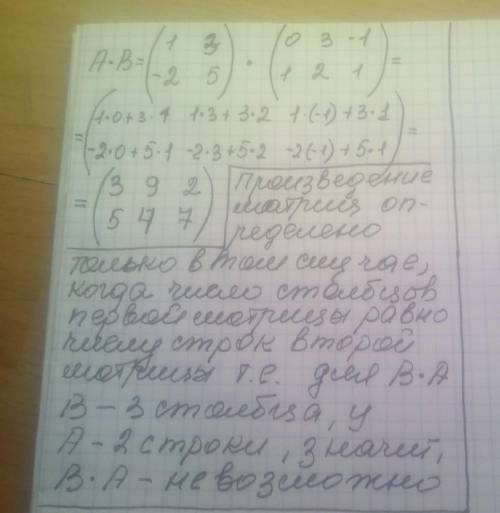 A·B = ( 1 3 ) · ( 0 3 -1 ) =
( -2 5 ) ( 1 2 1 )
= ( 1·0+3·1 1·3+3·2 1·(-1)+3·1 ) =
( -2·0+5·1 -2·3+5·2 -2(-1)+5·1 )
= ( 3 9 2 )
( 5 4 7 )
Произведение
матриц оп-
ределено
только в том случае,
когда число столбцов
первой матрицы равно
числу строк второй
матрицы т.е. для В·А
В – 3 столбца, у
А – 2 строки, значит,
В·А – невозможно